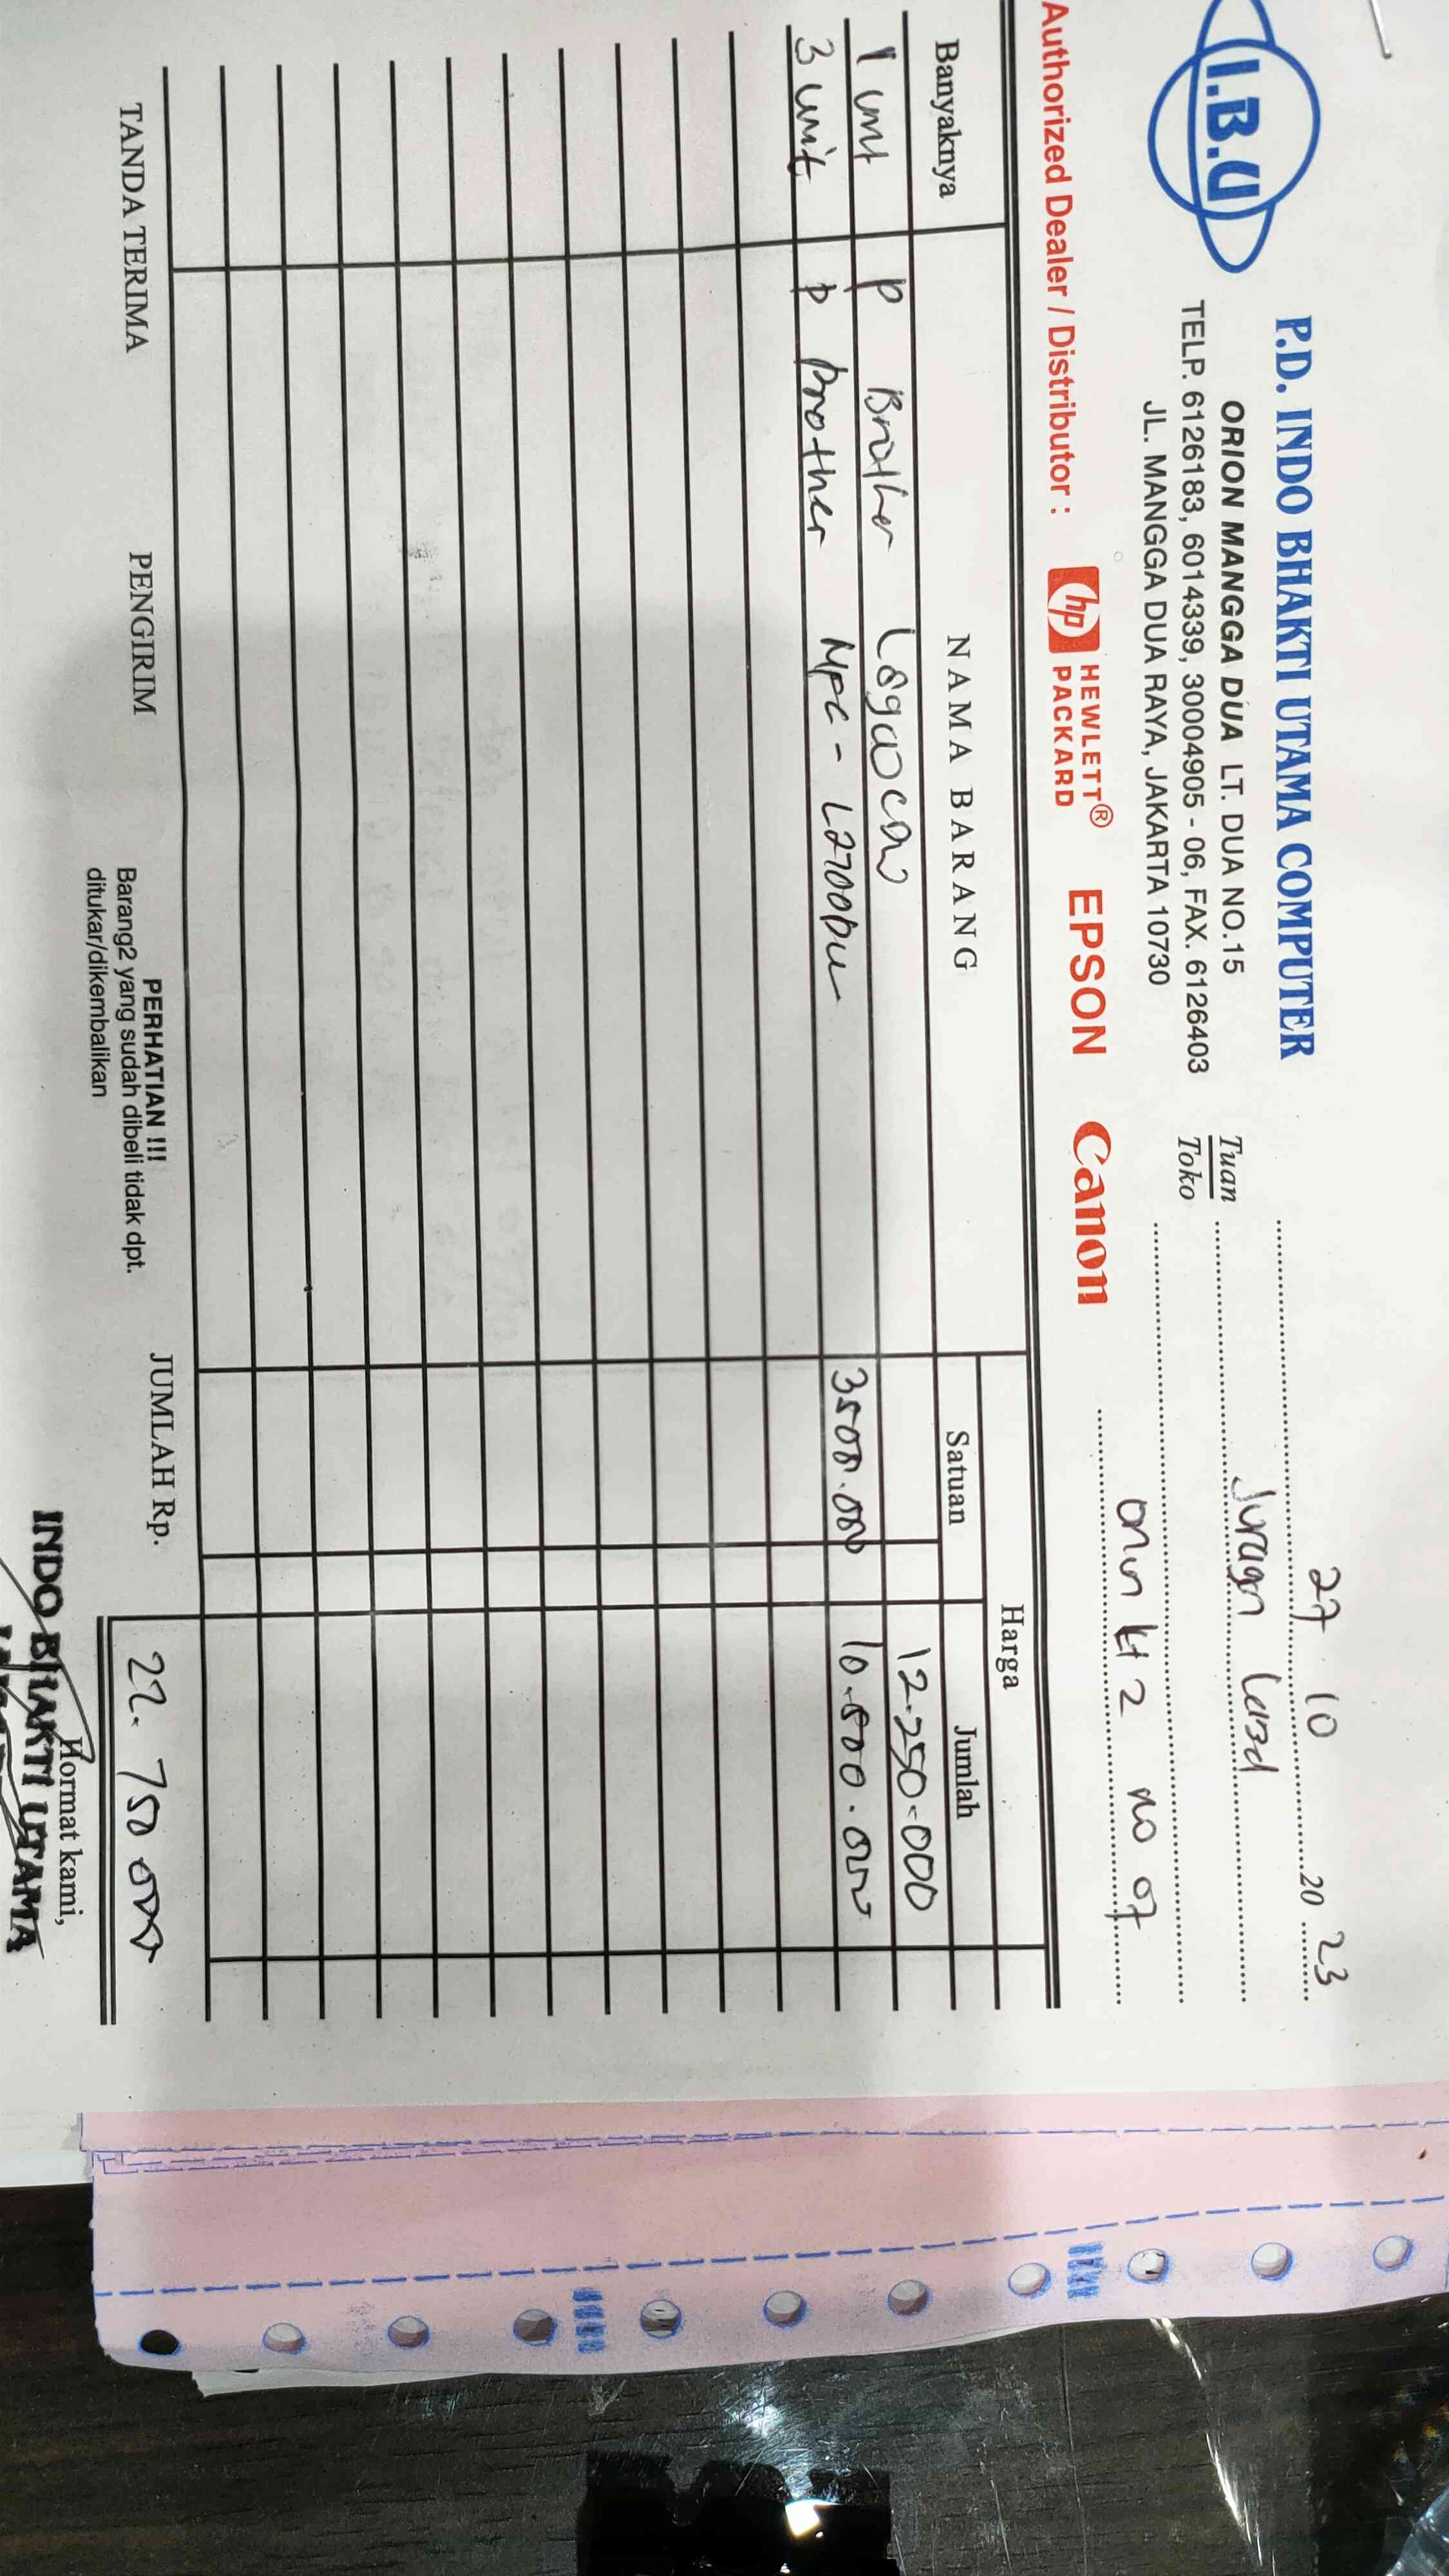 I.B.U
P.D. INDO BHAKTI UTAMA COMPUTER
ORION MANGGA DUA LT. DUA NO.15
TELP. 6126183, 6014339, 30004905 - 06, FAX. 6126403
JL. MANGGA DUA RAYA, JAKARTA 10730
27 10 20 23
Tuan
Toko
Juragn
no 07
Authorized Dealer / Distributor :
hp HEWLETT® PACKARD EPSON Canon
Banyaknya NAMA BARANG Harga
Satuan Jumlah
1 unt P Brother 12.250.000
3 unit P Brother MFC - L2700DW 3500.000 10.500.000
TANDA TERIMA PENGIRIM
PERHATIAN !!!
Barang2 yang sudah dibeli tidak dpt.
ditukar/dikembalikan
JUMLAH Rp. 22.750.000
Hormat kami,
INDO BHAKTI UTAMA